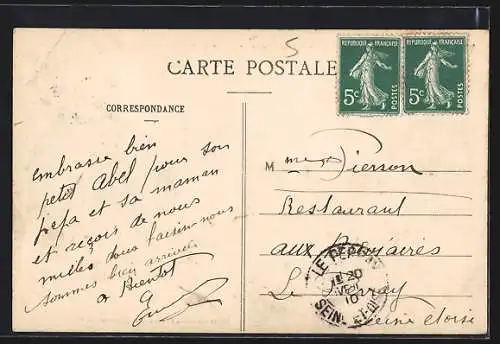 5
CARTE POSTALE
REPUBLIQUE FRANÇAISE
5c POSTES
REPUBLIQUE FRANÇAISE
5c POSTES
CORRESPONDANCE
embrasse bien
petit Abel pour son
pepa et sa maman
et reçois de nous
milles doux
sommes bien arrivés
a Bientot
Mme Pierson
Restaurant
aux
Le
Seine et oise
LE
20
10
SEINE-ET-OISE